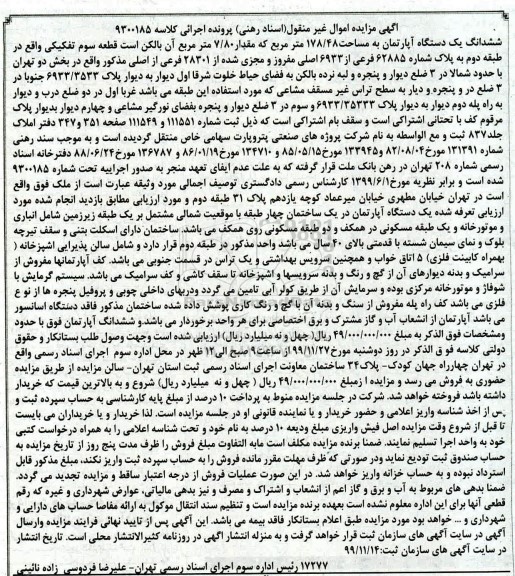 آگهی مزایده اموال غیر منقول(اسناد رهنی) پرونده اجرائی کلاسه ۹۳۰۰۱۸۵
ششدانگ یک دستگاه آپارتمان به مساحت۱۷۸/۴۸ متر مربع که مقدار۷/۸۰ متر مربع آن بالکن است قطعه سوم تفکیکی واقع در
طبقه دوم به پلاک شماره ۶۲۸۸۵ فرعی از۶۹۳۳ اصلی مفروز و مجزی شده از ۲۸۳۰۱ فرعی از اصلی مذکور واقع در بخش دو تهران
با حدود شمالا در ۳ ضلع دیوار و پنجره و لبه نرده بالکن به فضای حیاط خلوت شرقا اول دیوار به دیوار پلاک ۶۹۳۳/۳۵۳۳ جنوبا در
۳ ضلع در و پنجره و دیار به سطح تراس غیر مسقف مشاعی که مورد استفاده این طبقه می باشد غربا اول در دو ضلع درب و دیوار
به راه پله دوم دیوار به دیوار پلاک ۶۹۳۳/۳۵۳۳۳ و سوم در ۳ ضلع دیوار و پنجره بفضای نورگیر مشاعی و چهارم دیوار بدیوار پلاک
مرقوم کف با تحتانی اشتراکی است و سقف بام اشتراکی است که ذیل ثبت شماره ۱۱۱۵۵۱ و ۱۱۱۵۴۹ صفحه ۳۵۱ و۳۴۷ دفتر املاک
جلد۸۳۷ ثبت و مع الواسطه به نام شرکت پروژه های صنعتی پتروپارت سهامی خاص منتقل گردیده است و به موجب سند رهنی
شماره ۱۳۱۳۹۱ مورخ۸۲/۰۸/۰۴ و ۱۳۳۹۴۵ مورخ۸۵/۰۵/۱۵ و ۱۳۴۷۱۰ مورخ۸۶/۰۱/۱۹ و ۱۳۶۷۸۷ مورخ۸۸/۰۶/۲۴ دفترخانه اسناد
رسمی شماره ۲۰۸ تهران در رهن بانک ملت قرار گرفته که به علت عدم ایفای تعهد منجر به صدور اجراییه تحت شماره ۹۳۰۰۱۸۵
شده است و برابر نظریه مورخ۱۳۹۹/۶/۱ کارشناس رسمی دادگستری توصیف اجمالی مورد وثیقه عبارت است از ملک فوق واقع
است در تهران خیابان مطهری خیابان میرعماد کوچه یازدهم پلاک ۳۱ طبقه دوم و مورد ارزیابی مطابق بازدید انجام شده مورد
ارزیابی تعرفه شده یک دستگاه آپارتمان در یک ساختمان چهار طبقه با موقعیت شمالی مشتمل بر یک طبقه زیرزمین شامل انباری
و موتورخانه و یک طبقه مسکونی در همکف و سه طبقه مسکونی روی همکف می باشد. ساختمان دارای اسکلت بتنی و سقف تیرچه
بلوک و نمای سیمان شسته با قدمتی بالای ۴۰ سال می باشد واحد مذکور در طبقه دوم قرار دارد و شامل سالن پذیرایی اشپزخانه (
بهمراه کابینت فلزی) ۵ اتاق خواب و همچنین سرویس بهداشتی و یک تراس در قسمت جنوبی می باشد. کف آپارتمانها مفروش از
سرامیک و بدنه دیوارهای آن از گچ و رنگ و بدنه سرویسها و اشپزخانه تا سقف کاشی و کف سرامیک می باشد. سیستم گرمایش با
شوفاژ و موتورخانه مرکزی بوده و سرمایش آن از طریق کولر آبی تامین می گردد ودربهای داخلی چوبی و پروفیل پنجره ها از نو ع
فلزی می باشد کف راه پله مفروش از سنگ و بدنه آن با گچ و رنگ کاری پوشش داده شده ساختمان مذکور فاقد دستگاه اسانسور
می باشد آپارتمان از انشعاب آب و گاز مشترک و برق اختصاصی برای هر واحد برخوردار می باشد.و ششدانگ آپارتمان فوق با حدود
ومشخصات فوق الذکر به مبلغ ۴۹/۰۰۰/۰۰۰/۰۰۰ ریال( چهل و نه میلیارد ریال) ارزیابی شده است وجهت وصول طلب بستانکار و حقوق
دولتی کلاسه فو ق الذکر در روز دوشنبه مورخ۹۹/۱۱/۲۷ ازساعت۹ صبح الی۱۲ ظهر در محل اداره سوم اجرای اسناد رسمی واقع
در تهران چهارراه جهان کودک- پلاک۳۴ ساختمان معاونت اجرای اسناد رسمی ثبت استان تهران- سالن مزایده از طریق مزایده
حضوری به فروش می رسد و مزایده ازمبلغ ۴۹/۰۰۰/۰۰۰/۰۰۰ ریال ( چهل و نه میلیارد ریال) شروع و به بالاترین قیمت که خریدار
داشته باشد فروخته خواهد شد. شرکت در جلسه مزایده منوط به پرداخت ۱۰ درصد از مبلغ پایه کارشناسی به حساب سپرده ثبت و
پس از اخذ شناسه واریز اعلامی و حضور خریدار و یا نماینده قانونی او در جلسه مزایده است. لذا خریدار و یا خریداران می بایست
تا قبل از شروع وقت مزایده اصل فیش واریزی مبلغ ودیعه ۱۰ درصد به نام خود و تحت شناسه اعلامی را به همراه درخواست کتبی
خود به واحد اجرا تسلیم نمایند. ضمنا برنده مزایده مکلف است مابه التفاوت مبلغ فروش را ظرف مدت پنج روز از تاریخ مزایده به
حساب صندوق ثبت تودیع نماید ودر صورتی که ظرف مهلت مقرر مانده فروش را به حساب سپرده ثبت واریز نکند، مبلغ مذکور قابل
استرداد نبوده و به حساب خزانه واریز خواهد شد. در این صورت عملیات فروش از درجه اعتبار ساقط و مزایده تجدید می گردد.
ضمنا بدهی های مربوط به آب و برق و گاز اعم از انشعاب و اشتراک و مصرف و نیز بدهی مالیاتی، عوارض شهرداری و غیره که رقم
قطعی آنها برای این اداره معلوم نشده است بعهده برنده مزایده است و تنظیم سند انتقال موکول به ارائه مفاصا حساب های دارایی و
شهرداری و ... خواهد بود مورد مزایده طبق اعلام بستانکار فاقد بیمه می باشد. این آگهی پس از تایید نهائی فرایند مزایده وارسال
آگهی در سایت آگهی های سازمان ثبت قرار خواهد گرفت و به منزله انتشار اگهی در روزنامه کثیرالانتشار محلی است. تاریخ انتشار
در سایت آگهی های سازمان ثبت:۹۹/۱۱/۱۴
۱۷۲۷۷ رئیس اداره سوم اجرای اسناد رسمی تهران- علیرضا فردوسی زاده نائینی